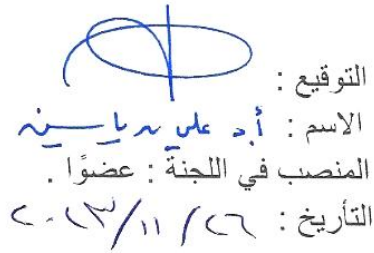 التوقيع :
الاسم : أ.د علي ياسين
المنصب في اللجنة : عضوًا .
التأريخ : ٢٠٢٣/١١/٢٦